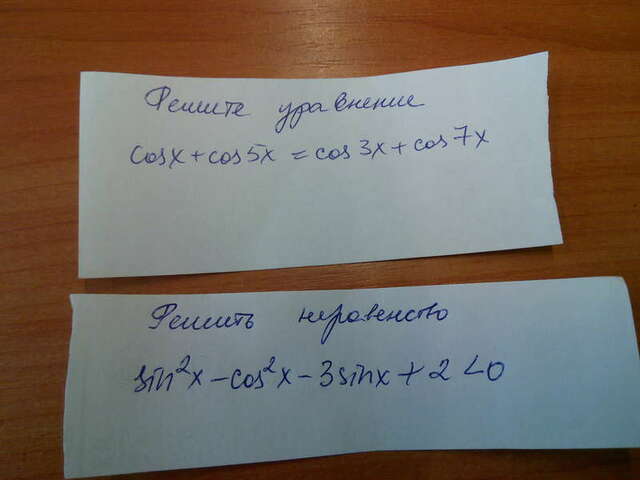 Решите уравнение
cosx + cos5x = cos3x + cos7x
Решить неравенство
sin²x - cos²x - 3sinx + 2 < 0